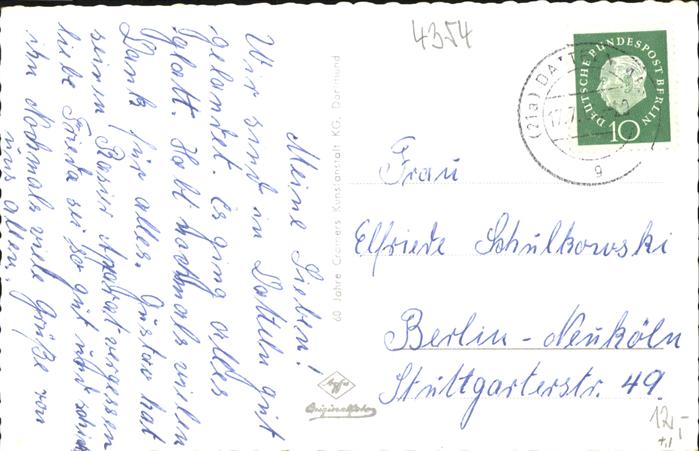 4354
Meine Lieben!
Wir sind in Datteln gut
gelandet. Es ging alles
glatt. Habt nochmals vielen
Dank für alles. Gustav hat
seinen Rasier Apparat vergessen
liebe Frieda sei so gut und schick
ihn Nochmals viele Grüße von
uns allen.
60 Jahre Cramers Kunstanstalt KG, Dortmund
Agfa
Originalfoto
DEUTSCHE BUNDESPOST BERLIN
10
(21a) DATT
17.7.
g
Frau
Elfriede Schulkowski
Berlin-Neuköln
Stuttgarterstr. 49.
12,-